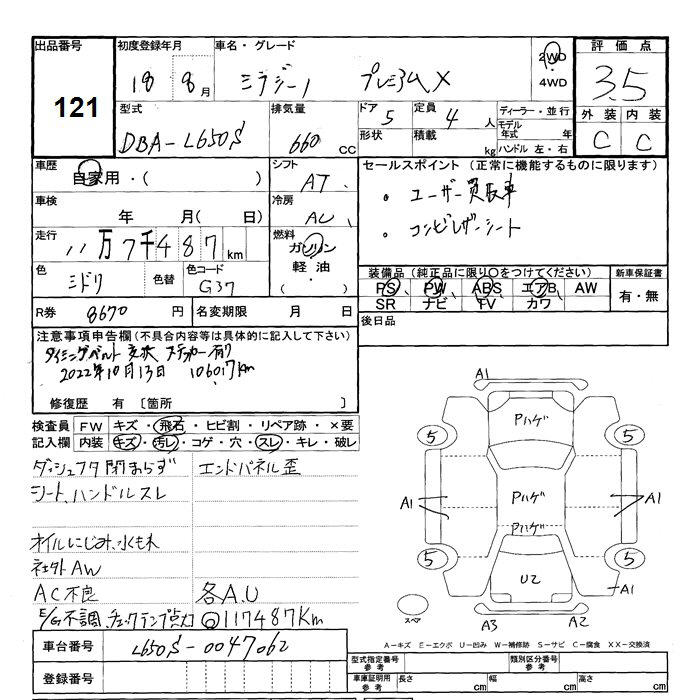 出品番号 初度登録年月 車名・グレード 2WD 評価点
18 8月 ミラジーノ プレミアムX 4WD 3.5
121
型式 排気量 ドア 5 定員 4人 ディーラー・並行 外装 内装
DBA-L650S 660 CC 形状 積載 kg モデル年式 年 C C
ハンドル 左・右
車歴 シフト セールスポイント (正常に機能するものに限ります)
自家用・( ) AT
車検 冷房 ・ユーザー買取車
年 月( 日) AC ・コンビレザーシート
走行 11万7千487km 燃料 ガソリン
軽油・( )
色 色替 色コード 装備品(純正品に限り○をつけてください) 新車保証書
ミドリ G37 PS PW ABS エアB、 AW 有・無
R券 8670円 名変期限 月 日 SR ナビ TV カワ
後日品
注意事項申告欄(不具合内容等は具体的に記入して下さい)
タイミングベルト交換ステッカー有り
2022年10月13日 106017km
修復歴 有 [箇所 ]
検査員 FW キズ・飛石・ヒビ割・リペア跡・×要
記入欄 内装 キズ・汚レ・コゲ・穴・スレ・キレ・破レ
ダッシュフタ閉まらず エンドパネル歪
シート、ハンドルスレ
オイルにじみ、水もれ
社外AW
AC不良 各A.U
E/G不調、チェックランプ点灯 ◎117487Km
車台番号 L650S-0047062
登録番号
A1
Pハゲ
5 5
A1 Pハゲ A1
Pハゲ
5 5
U2 A1
スペア A3 A2
A－キズ E－エクボ U－凹み W－補修跡 S－サビ C－腐食 XX－交換済
型式指定番号 参考 類別区分番号 参考
車庫証明用 参考 長さ cm 幅 cm 高さ cm